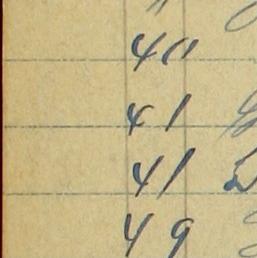 "
40
41
41
49